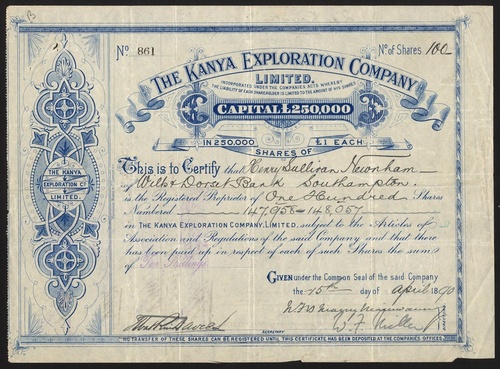 B
No. 861
No. of Shares 100
THE KANYA EXPLORATION COMPANY
LIMITED.
INCORPORATED UNDER THE COMPANIES ACTS WHEREBY
THE LIABILITY OF EACH SHAREHOLDER IS LIMITED TO THE AMOUNT OF HIS SHARES
CAPITAL £250,000
IN 250,000 SHARES OF £1 EACH
This is to Certify that Henry Sullivan Newnham
of Wilts & Dorset Bank Southampton
is the Registered Proprietor of One Hundred Shares
Numbered 147,958-148,057
in THE KANYA EXPLORATION COMPANY, LIMITED, subject to the Articles of
Association and Regulations of the said Company and that there
has been paid up in respect of each of such Shares the sum
of Ten Shillings
GIVEN under the Common Seal of the said Company
the 15th day of April 1890
DIRECTORS
SECRETARY
NO TRANSFER OF THESE SHARES CAN BE REGISTERED UNTIL THIS CERTIFICATE HAS BEEN DEPOSITED AT THE COMPANIES OFFICES.
THE KANYA
EXPLORATION Co.
LIMITED.